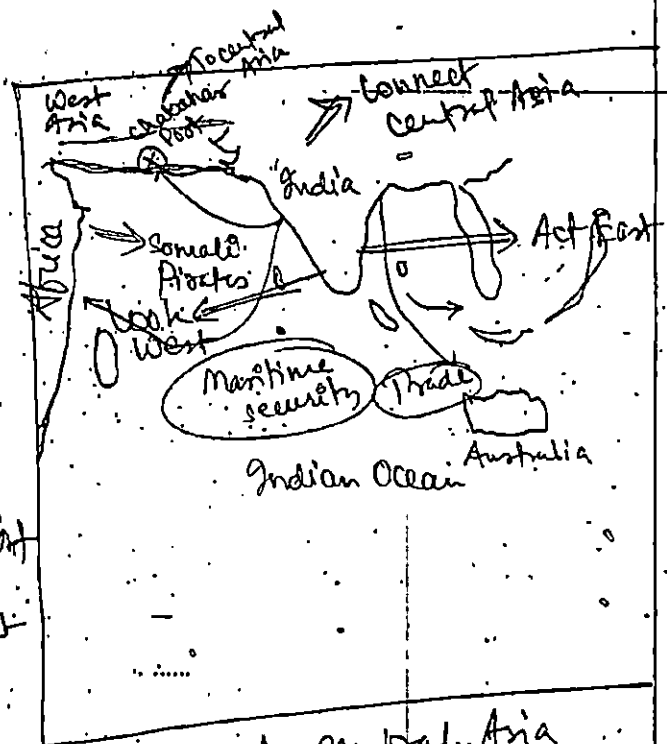 To central
Asia
West
Asia
Chabahar
Port
Connect
central Asia
"India
Africa
Somali
Pirates
Act East
Look
West
Maritime
security
Trade
Australia
Indian Ocean
Asia